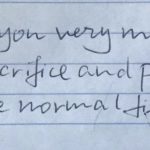 you very m
crifice and p
e normal ti